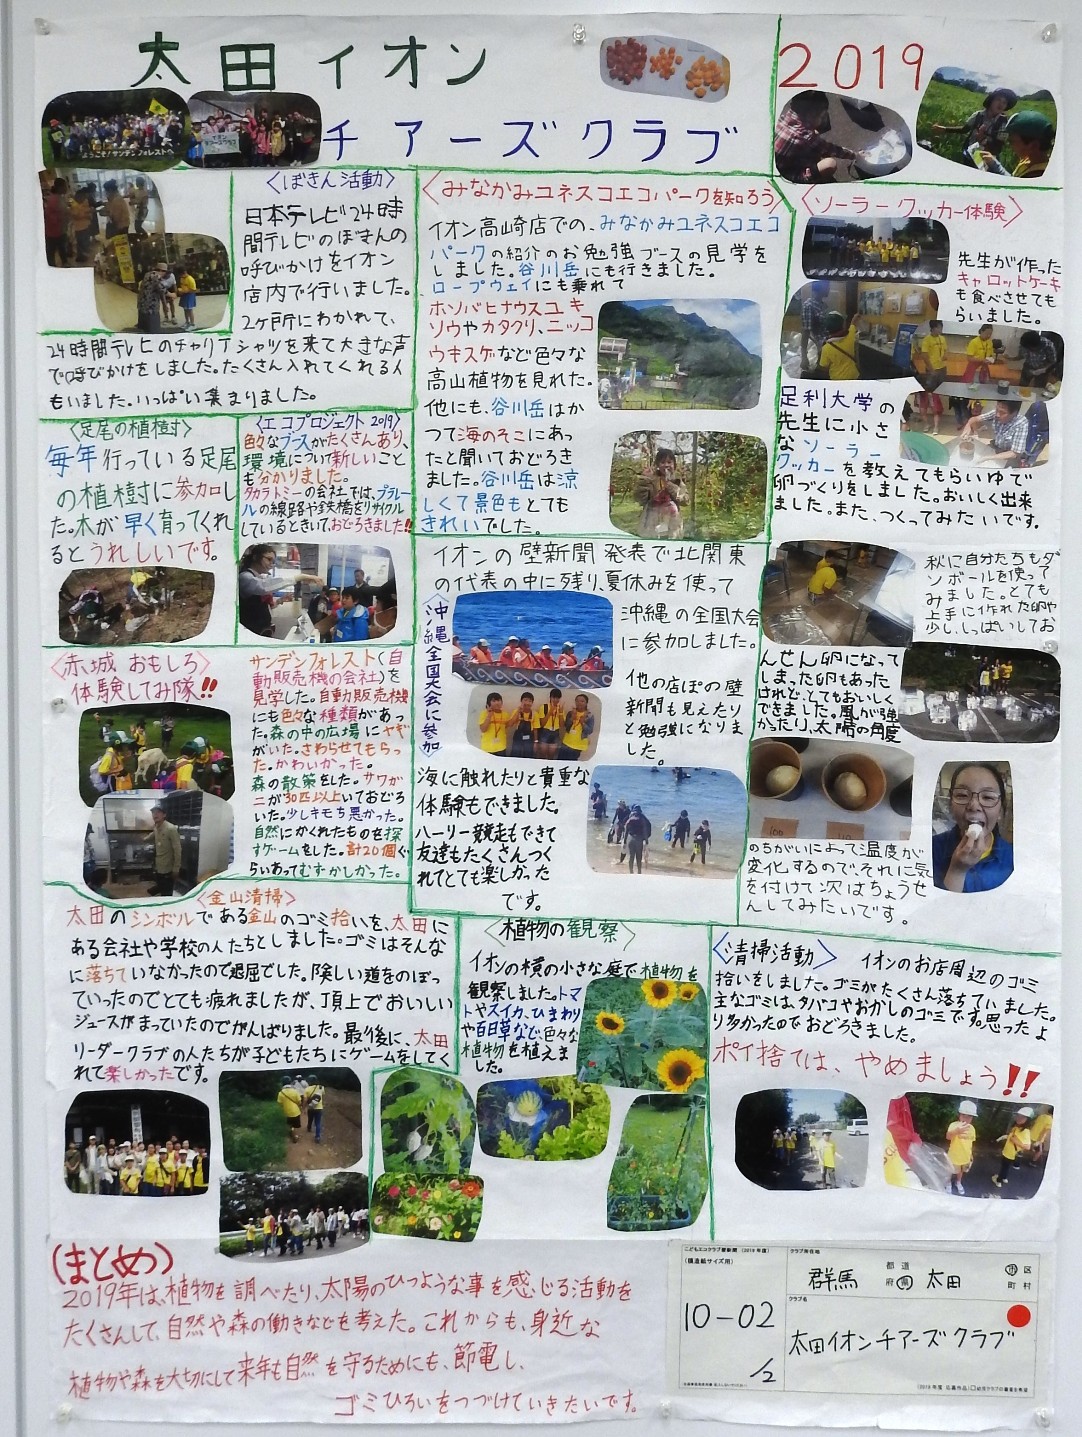 太田イオン
チアーズクラブ
2019
ようこそ!サンデンフォレストへ
〈ぼきん活動〉
日本テレビ24時
間テレビのぼきんの
呼びかけをイオン
店内で行いました。
2ヶ所にわかれて、
24時間テレビのチャリTシャツを来て大きな声
で呼びかけをしました。たくさん入れてくれる人
もいました。いっぱい集まりました。
〈足尾の植樹〉
毎年行っている足尾
の植樹に参加し
た。木が早く育ってくれ
るとうれしいです。
〈エコプロジェクト2019〉
色々なブースがたくさんあり、
環境について新しいこと
も分かりました。
タカラトミーの会社では、プラレー
ルの線路や鉄橋をリサイクル
しているときいて、おどろきました!!
〈みなかみユネスコエコパークを知ろう〉
イオン高崎店での、みなかみユネスコエコ
パークの紹介のお勉強ブースの見学を
しました。谷川岳にも行きました。
ロープウェイにも乗れて
ホソバヒナウスユキ
ソウやカタクリ、ニッコ
ウキスゲなど色々な
高山植物を見れた。
他にも、谷川岳はか
つて海のそこにあっ
たと聞いておどろき
ました。谷川岳は涼
しくて景色もとても
きれいでした。
〈ソーラークッカー体験〉
先生が作った
キャロットケーキ
も食べさせても
らいました。
足利大学の
先生に小さ
なソーラー
クッカーを教えてもらいゆで
卵づくりをしました。おいしく出来
ました。また、つくってみたいです。
秋に自分たちもダ
ンボールを使って
みました。とても
上手に作れた卵や
少し、しっぱいしてお
んせん卵になって
しまった卵もあった
けれど、とてもおいしく
できました。風が強
かったり、太陽の角度
のちがいによって温度が
変化するので、それに気
を付けて次はちょうせ
んしてみたいです。
イオンの壁新聞発表で北関東
の代表の中に残り、夏休みを使って
沖縄の全国大会
に参加しました。
沖縄全国大会に参加
他の店ぽの壁
新聞も見えたり
と勉強になりま
した。
海に触れたりと貴重な
体験もできました。
ハーリー競走もできて
友達もたくさんつく
れてとても楽しかった
です。
〈赤城おもしろ
体験してみ隊!!〉
サンデンフォレスト(自
動販売機の会社)を
見学した。自動販売機
にも色々な種類があっ
た。森の中の広場にヤギ
がいた。さわらせてもらっ
た。かわいかった。
森の散策をした。サワガ
ニが30匹以上いておどろ
いた。少しキモち悪かった。
自然にかくれたものを探
すゲームをした。計20個ぐ
らいあってむずかしかった。
〈金山清掃〉
太田のシンボルである金山のゴミ拾いを、太田に
ある会社や学校の人たちとしました。ゴミはそんな
に落ちていなかったので退屈でした。険しい道をのぼっ
ていったのでとても疲れましたが、頂上でおいしい
ジュースがまっていたのでがんばりました。最後に、太田
リーダークラブの人たちが子どもたちにゲームをしてく
れて楽しかったです。
〈植物の観察〉
イオンの横の小さな庭で植物を
観察しました。トマ
トやスイカ、ひまわり
や百日草など、色々な
植物を植えま
した。
〈清掃活動〉
イオンのお店周辺のゴミ
拾いをしました。ゴミがたくさん落ちていました。
主なゴミは、タバコやおかしのゴミです。思ったよ
り多かったのでおどろきました。
ポイ捨ては、やめましょう!!
(まとめ)
2019年は、植物を調べたり、太陽のひつような事を感じる活動を
たくさんして、自然や森の働きなどを考えた。これからも、身近な
植物や森を大切にして来年も自然を守るためにも、節電し、
ゴミひろいをつづけていきたいです。
こどもエコクラブ壁新聞(2019年度)
(模造紙サイズ用)
10-02
1/2
クラブ所在地
群馬 都道府県 太田 市区町村
クラブ名
太田イオンチアーズクラブ